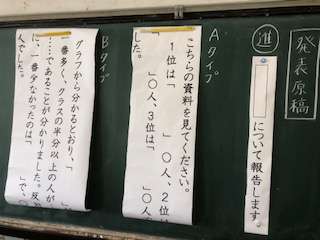 発表原稿
進
について報告します。
Aタイプ
こちらの資料を見てください。
1位は「　　」〇人、2位
「　　」〇人、3位は「　　」〇人
した。
Bタイプ
グラフから分かるとおり、「
一番多く、クラスの半分以上の人が
……であることが分かりました。反
に、一番少なかったのは「　　」で、〇
人でした。